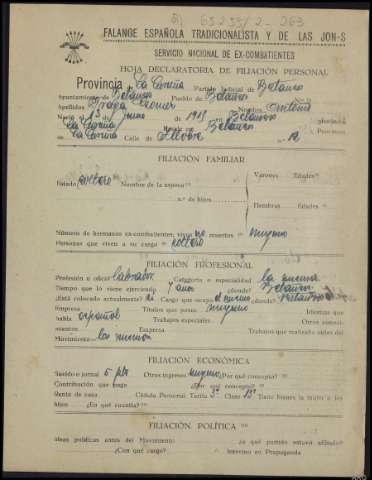 65235/2-263
FALANGE ESPAÑOLA TRADICIONALISTA Y DE LAS JON-S
SERVICIO NACIONAL DE EX-COMBATIENTES
HOJA DECLARATORIA DE FILIACIÓN PERSONAL
Provincia La Coruña Partido Judicial de Betanzos
Ayuntamiento de Betanzos Pueblo de Betanzos
Apellidos Nombre
Nació el 13 de Junio de 1915 en Betanzos Provincia
La Coruña Reside en Betanzos
La Coruña Calle de n.º 12
FILIACIÓN FAMILIAR
Estado soltero Nombre de la esposa Varones Edades
n.º de hijos
Hembras Edades
Número de hermanos ex-combatientes, vivos no muertos ninguno
Personas que viven a su cargo soltero
FILIACIÓN PROFESIONAL
Profesión u oficio labrador Categoría o especialidad la misma
Tiempo que lo viene ejerciendo 7 años ¿dónde? Betanzos
¿Está colocado actualmente? si Cargo que ocupa el mismo ¿dónde? Betanzos
Títulos que posee ninguno Idiomas que
habla español
Empresa Trabajos que realizaba antes del
Movimiento los mismos
FILIACIÓN ECONÓMICA
Sueldo o jornal 5 pts Otros ingresos ninguno ¿Por qué concepto?
Contribución que paga ¿Por qué concepto?
Renta de casa Cédula Personal: Tarifa 3ª Clase 13ª Tiene bienes la mujer o los
hijos ¿En qué cuantía?
FILIACIÓN POLÍTICA
Ideas políticas antes del Movimiento ¿a qué partido estuvo afiliado?
¿Con qué cargo? Intervino en Propaganda